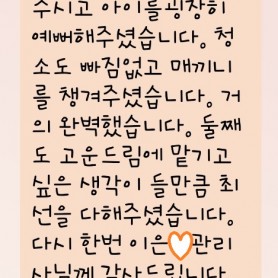 주시고 아이들굉장히
예뻐해주셨습니다. 청
소도 빠짐없고 매끼니
를 챙겨주셨습니다. 거
의 완벽했습니다. 둘째
도 고운드림에 맡기고
싶은 생각이 들만큼 최
선을 다해주셨습니다.
다시 한번 이은🧡관리
사님께 감사드립니다